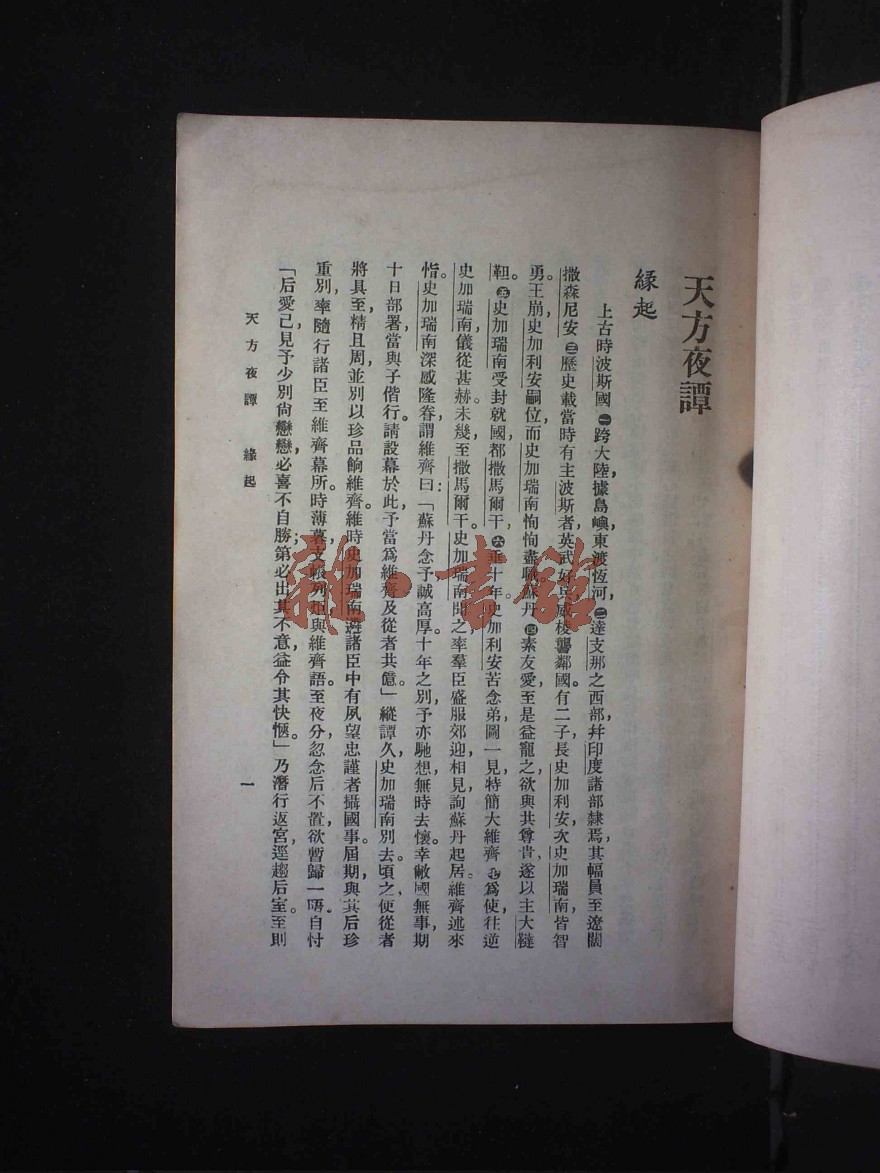 天方夜譚
緣起
上古時波斯國㊀跨大陸，據島嶼，東渡恆河，㊁達支那之西部，幷印度諸部隸焉，其幅員至遼闊
撒森尼安㊂歷史載當時有主波斯者，英武好兵，威棱讋鄰國。有二子，長史加利安，次史加瑞南，皆智
勇。王崩，史加利安嗣位，而史加瑞南恂恂盡職。蘇丹㊃素友愛，至是益寵之，欲與共尊貴，遂以主大韃
靼。㊄史加瑞南受封就國，都撒馬爾干，㊅垂十年。史加利安苦念弟，圖一見，特簡大維齊㊆爲使往逆
史加瑞南，儀從甚赫，未幾至撒馬爾干。史加瑞南聞之，率羣臣盛服郊迎，相見，詢蘇丹起居。維齊述來
惛。史加瑞南深感隆眷，謂維齊曰：「蘇丹念予誠高厚。十年之別，予亦馳想，無時去懷。幸敝國無事，期
十日部署，當與子偕行。請設幕於此，予當爲維齊及從者共億。」縱譚久，史加瑞南別去。頃之，使從者
將具至，精且周，並別以珍品餉維齊。維時史加瑞南遴諸臣中有夙望忠謹者攝國事。屆期，與其后珍
重別，率隨行諸臣至維齊幕所。時薄暮，支帳列炬，與維齊語。至夜分，忽念后不置，欲暫歸一晤。自忖
「后愛己，見予少別，尙戀戀，必喜不自勝；第必出其不意，益令其快愜。」乃潛行返宮，逕趨后室。至則
天方夜譚 緣起 一
龍·書館